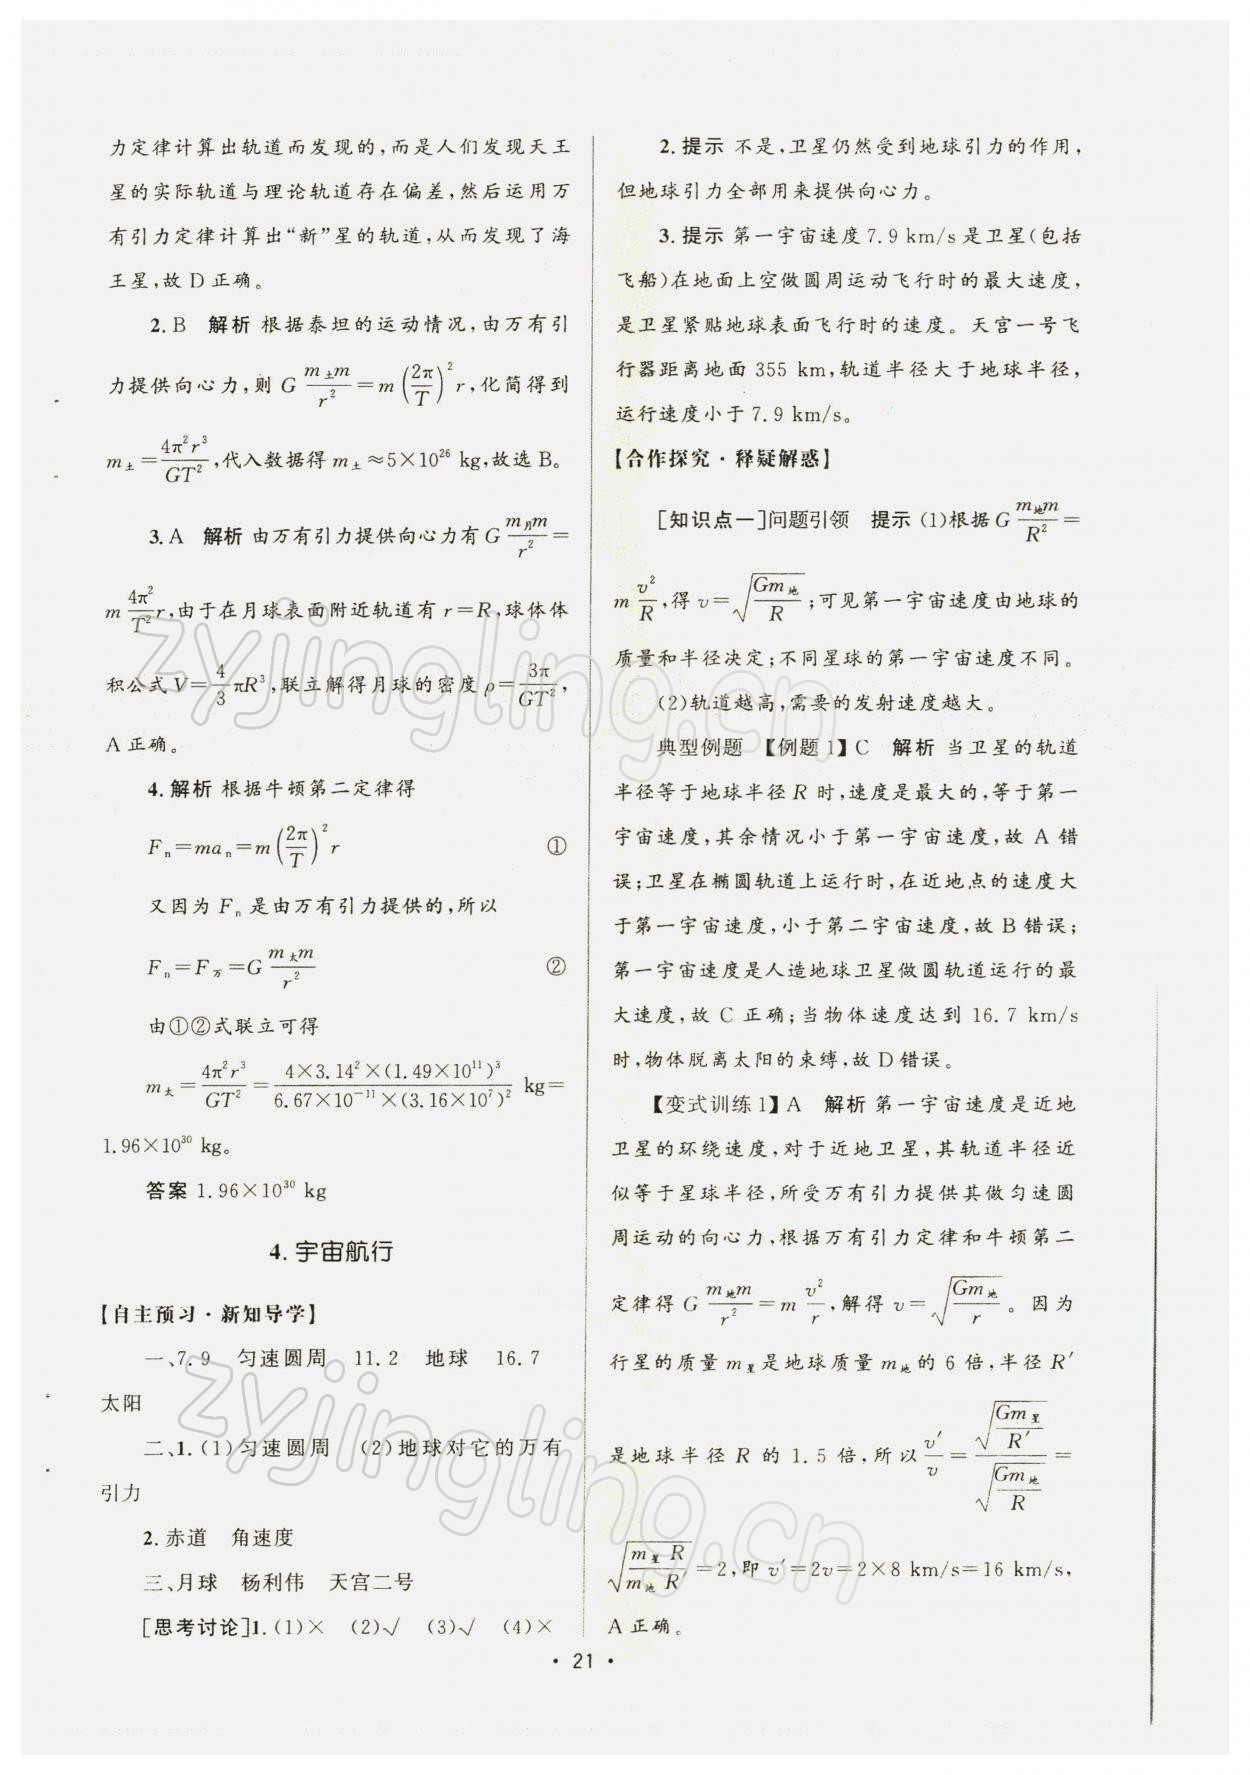 力定律计算出轨道而发现的,而是人们发现天王
星的实际轨道与理论轨道存在偏差,然后运用万
有引力定律计算出“新”星的轨道,从而发现了海
王星,故 D 正确。
2. B 解析 根据泰坦的运动情况,由万有引
力提供向心力,则 G m土m/r² = m(2π/T)² r,化简得到
m土 = 4π²r³/GT²,代入数据得 m土≈5×10²⁶ kg,故选 B。
3. A 解析 由万有引力提供向心力有 G m月m/r² =
m 4π²/T² r,由于在月球表面附近轨道有 r=R,球体体
积公式 V= 4/3 πR³,联立解得月球的密度 ρ= 3π/GT²,
A 正确。
4. 解析 根据牛顿第二定律得
Fn=man=m(2π/T)² r ①
又因为 Fn 是由万有引力提供的,所以
Fn=F万=G m太m/r² ②
由①②式联立可得
m太= 4π²r³/GT² = 4×3.14²×(1.49×10¹¹)³/6.67×10⁻¹¹×(3.16×10⁷)² kg=
1.96×10³⁰ kg。
答案 1.96×10³⁰ kg
4. 宇宙航行
【自主预习·新知导学】
一、7.9 匀速圆周 11.2 地球 16.7
太阳
二、1. (1)匀速圆周 (2)地球对它的万有
引力
2. 赤道 角速度
三、月球 杨利伟 天宫二号
[思考讨论]1. (1)× (2)√ (3)√ (4)×
2. 提示 不是,卫星仍然受到地球引力的作用,
但地球引力全部用来提供向心力。
3. 提示 第一宇宙速度 7.9 km/s 是卫星(包括
飞船)在地面上空做圆周运动飞行时的最大速度,
是卫星紧贴地球表面飞行时的速度。天宫一号飞
行器距离地面 355 km,轨道半径大于地球半径,
运行速度小于 7.9 km/s。
【合作探究·释疑解惑】
[知识点一]问题引领 提示 (1)根据 G m地m/R² =
m v²/R,得 v=√(Gm地/R);可见第一宇宙速度由地球的
质量和半径决定;不同星球的第一宇宙速度不同。
(2)轨道越高,需要的发射速度越大。
典型例题 【例题1】C 解析 当卫星的轨道
半径等于地球半径 R 时,速度是最大的,等于第一
宇宙速度,其余情况小于第一宇宙速度,故 A 错
误;卫星在椭圆轨道上运行时,在近地点的速度大
于第一宇宙速度,小于第二宇宙速度,故 B 错误;
第一宇宙速度是人造地球卫星做圆轨道运行的最
大速度,故 C 正确;当物体速度达到 16.7 km/s
时,物体脱离太阳的束缚,故 D 错误。
【变式训练1】A 解析 第一宇宙速度是近地
卫星的环绕速度,对于近地卫星,其轨道半径近
似等于星球半径,所受万有引力提供其做匀速圆
周运动的向心力,根据万有引力定律和牛顿第二
定律得 G m地m/r² = m v²/r,解得 v=√(Gm地/r)。因为
行星的质量 m星是地球质量 m地的 6 倍,半径 R′
是地球半径 R 的 1.5 倍,所以 v′/v = √(Gm星/R′)/√(Gm地/R) =
√(m星R/m地R′)=2,即 v′=2v=2×8 km/s=16 km/s,
A 正确。
· 21 ·
zyjingling.cn
zyjingling.cn